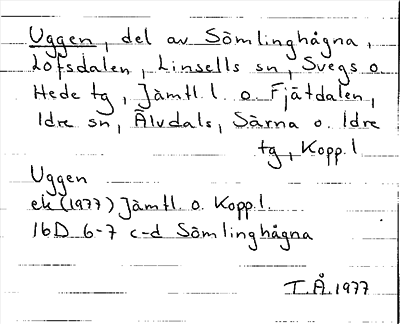 Uggen, del av Sömlinghågna,
Lofsdalen, Linsells sn, Svegs o
Hede tg, Jämtl. l. o. Fjätdalen,
Idre sn, Älvdals, Särna o. Idre
tg, Kopp. l
Uggen
ek (1977) Jämtl. o. Kopp. l.
16D 6-7 c-d Sömlinghågna
T.Å. 1977